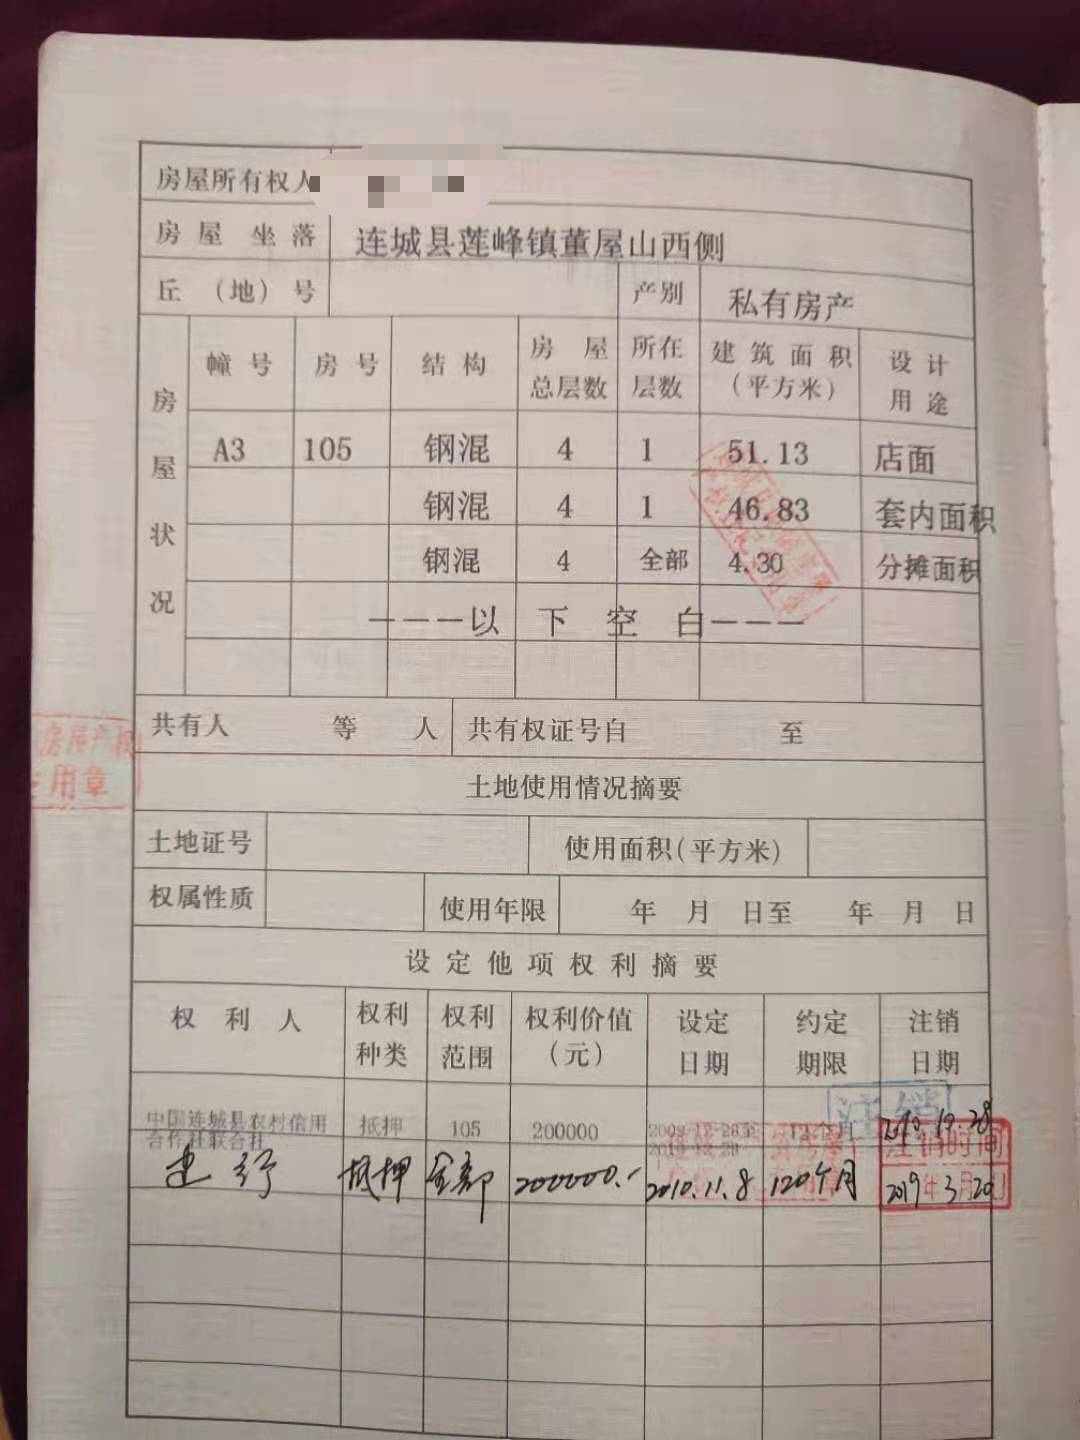 房屋所有权人
房屋坐落 连城县莲峰镇董屋山西侧
丘（地）号 产别 私有房产
房屋状况
幢号 房号 结构 房屋总层数 所在层数 建筑面积（平方米） 设计用途
A3 105 钢混 4 1 51.13 店面
钢混 4 1 46.83 套内面积
钢混 4 全部 4.30 分摊面积
———以下空白———
共有人 等 人 共有权证号自 至
房屋产权
专用章
土地使用情况摘要
土地证号 使用面积(平方米)
权属性质 使用年限 年 月 日至 年 月 日
设定他项权利摘要
权利人 权利种类 权利范围 权利价值（元） 设定日期 约定期限 注销日期
注销
中国连城县农村信用合作社联合社 抵押 105 200000 12个月
注销时间
建行 抵押 全部 200000.- 2010.11.8 120个月 2019年3月20